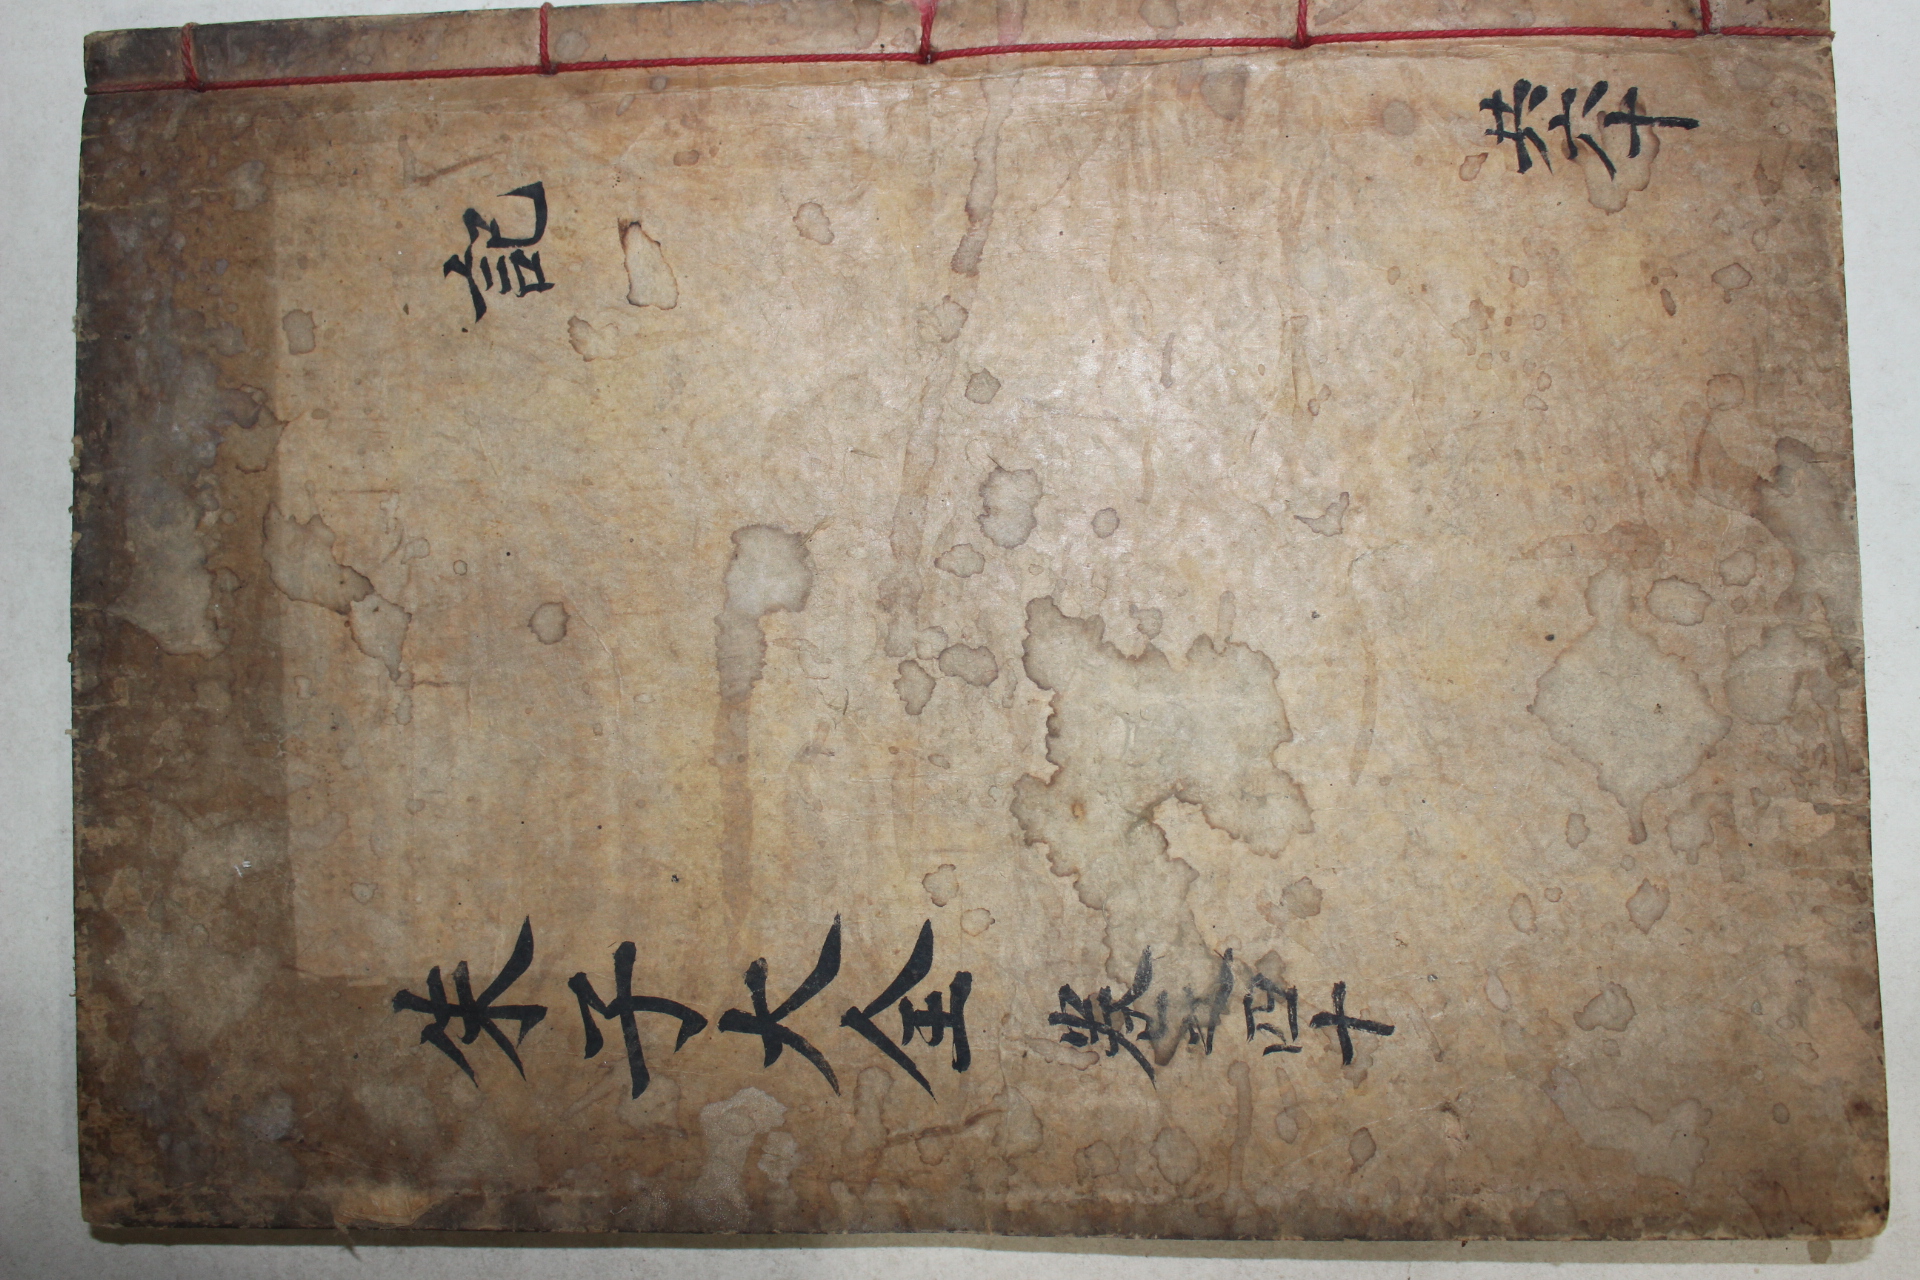 記
朱子大全 卷之四十
共六十